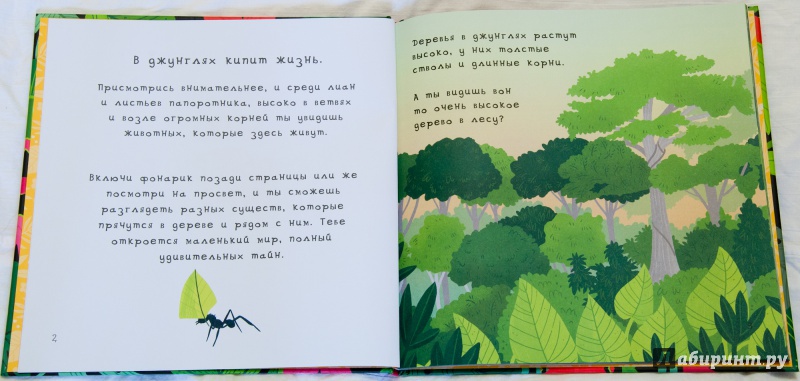 В джунглях кипит жизнь.
Присмотрись внимательнее, и среди лиан
и листьев папоротника, высоко в ветвях
и возле огромных корней ты увидишь
животных, которые здесь живут.
Включи фонарик позади страницы или же
посмотри на просвет, и ты сможешь
разглядеть разных существ, которые
прячутся в дереве и рядом с ним. Тебе
откроется маленький мир, полный
удивительных тайн.
2
Деревья в джунглях растут
высоко, у них толстые
стволы и длинные корни.
А ты видишь вон
то очень высокое
дерево в лесу?
Лабиринт.ру